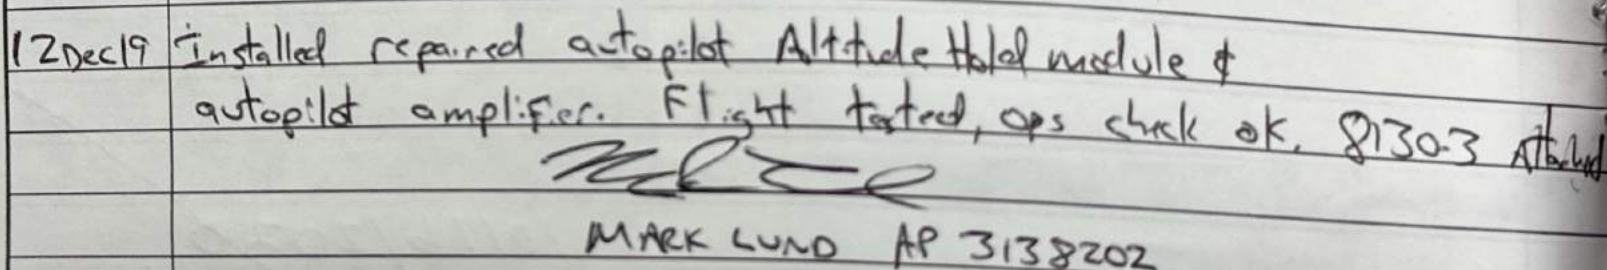 12Dec19 Installed repaired autopilot Altitude Hold module &
autopilot amplifier. Flight tested, ops check ok. 8130-3 Attached
MARK LUND AP 3138202